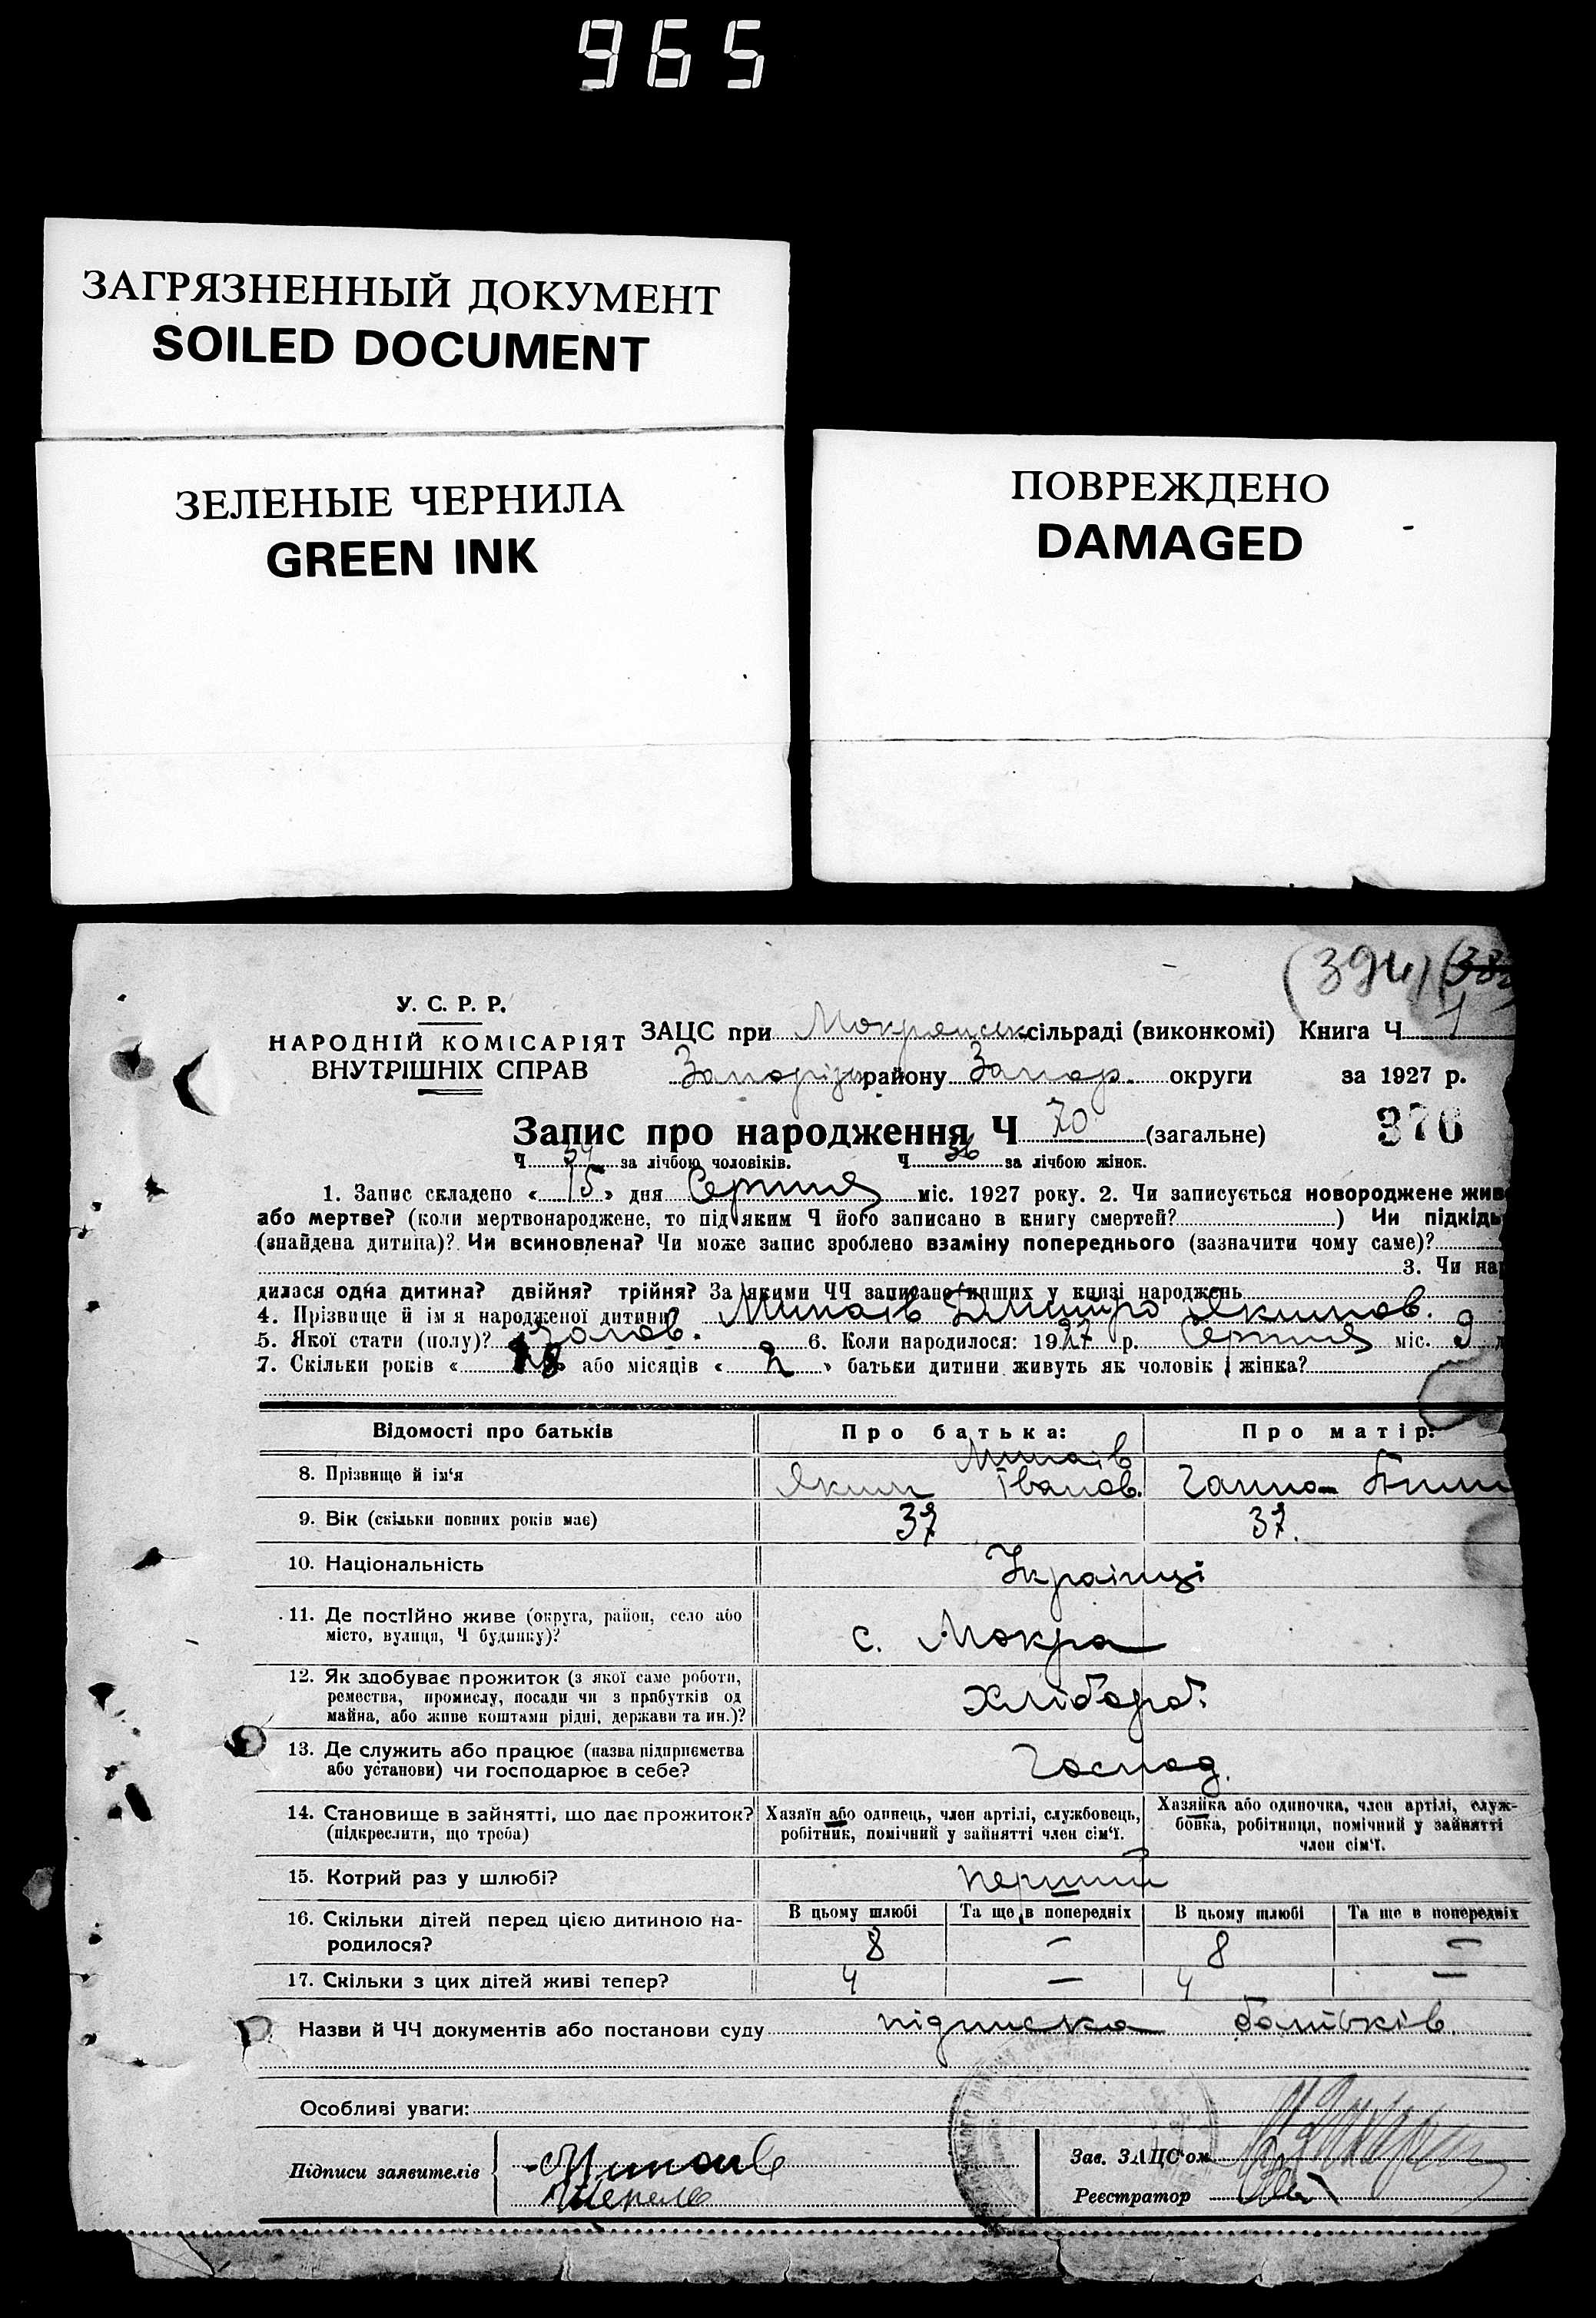 965
ЗАГРЯЗНЕННЫЙ ДОКУМЕНТ
SOILED DOCUMENT
ЗЕЛЕНЫЕ ЧЕРНИЛА
GREEN INK
ПОВРЕЖДЕНО
DAMAGED
(394)
У. С. Р. Р.
НАРОДНІЙ КОМІСАРІЯТ
ВНУТРІШНІХ СПРАВ
ЗАЦС при Мокрянськ сільраді (виконкомі) Книга Ч. 1
Запорізьк району Запор. округи за 1927 р.
Запис про народження Ч 70 (загальне) 376
Ч. 34 за лічбою чоловіків. Ч. 36 за лічбою жінок.
1. Запис складено « 15 » дня Серпня міс. 1927 року. 2. Чи записується новороджене жив
або мертве? (коли мертвонароджене, то під яким Ч його записано в книгу смертей? ) Чи підкідь
(знайдена дитина)? Чи всиновлена? Чи може запис зроблено взаміну попереднього (зазначити чому саме)?
3. Чи нар
дилася одна дитина? двійня? трійня? За якими ЧЧ записано инших у книзі народжень
4. Прізвище й ім'я народженої дитини? Минаів Дмитро Якимов.
5. Якої стати (полу)? Чолов. 6. Коли народилося: 1927 р. Серпня міс. 9
7. Скільки років « 18 » або місяців « 2 » батьки дитини живуть як чоловік і жінка?
Відомості про батьків Про батька: Про матір:
8. Прізвище й ім'я Минаів Яким Іванов. Ганна
9. Вік (скільки повних років має) 37 37.
10. Національність Українці
11. Де постійно живе (округа, район, село або
місто, вулиця, Ч будинку)? с. Мокра
12. Як здобуває прожиток (з якої саме роботи,
ремества, промислу, посади чи з прибутків од
майна, або живе коштами рідні, держави та ин.)? Хлібороб.
13. Де служить або працює (назва підприємства
або установи) чи господарює в себе? Господ.
14. Становище в зайнятті, що дає прожиток?
(підкреслити, що треба)
Хазяїн або одинець, член артілі, службовець,
робітник, помічний у зайнятті член сім'ї.
Хазяйка або одиночка, член артілі, служ-
бовка, робітниця, помічний у зайнятті
член сім'ї.
15. Котрий раз у шлюбі? перший
16. Скільки дітей перед цією дитиною на-
родилося?
В цьому шлюбі Та ще в попередніх В цьому шлюбі Та ще в попередніх
8 — 8 —
17. Скільки з цих дітей живі тепер? 4 — 4 —
Назви й ЧЧ документів або постанови суду підписка батьків.
Особливі уваги:
Підписи заявителів Минаів
Зав. ЗАЦС'ом
Реєстратор